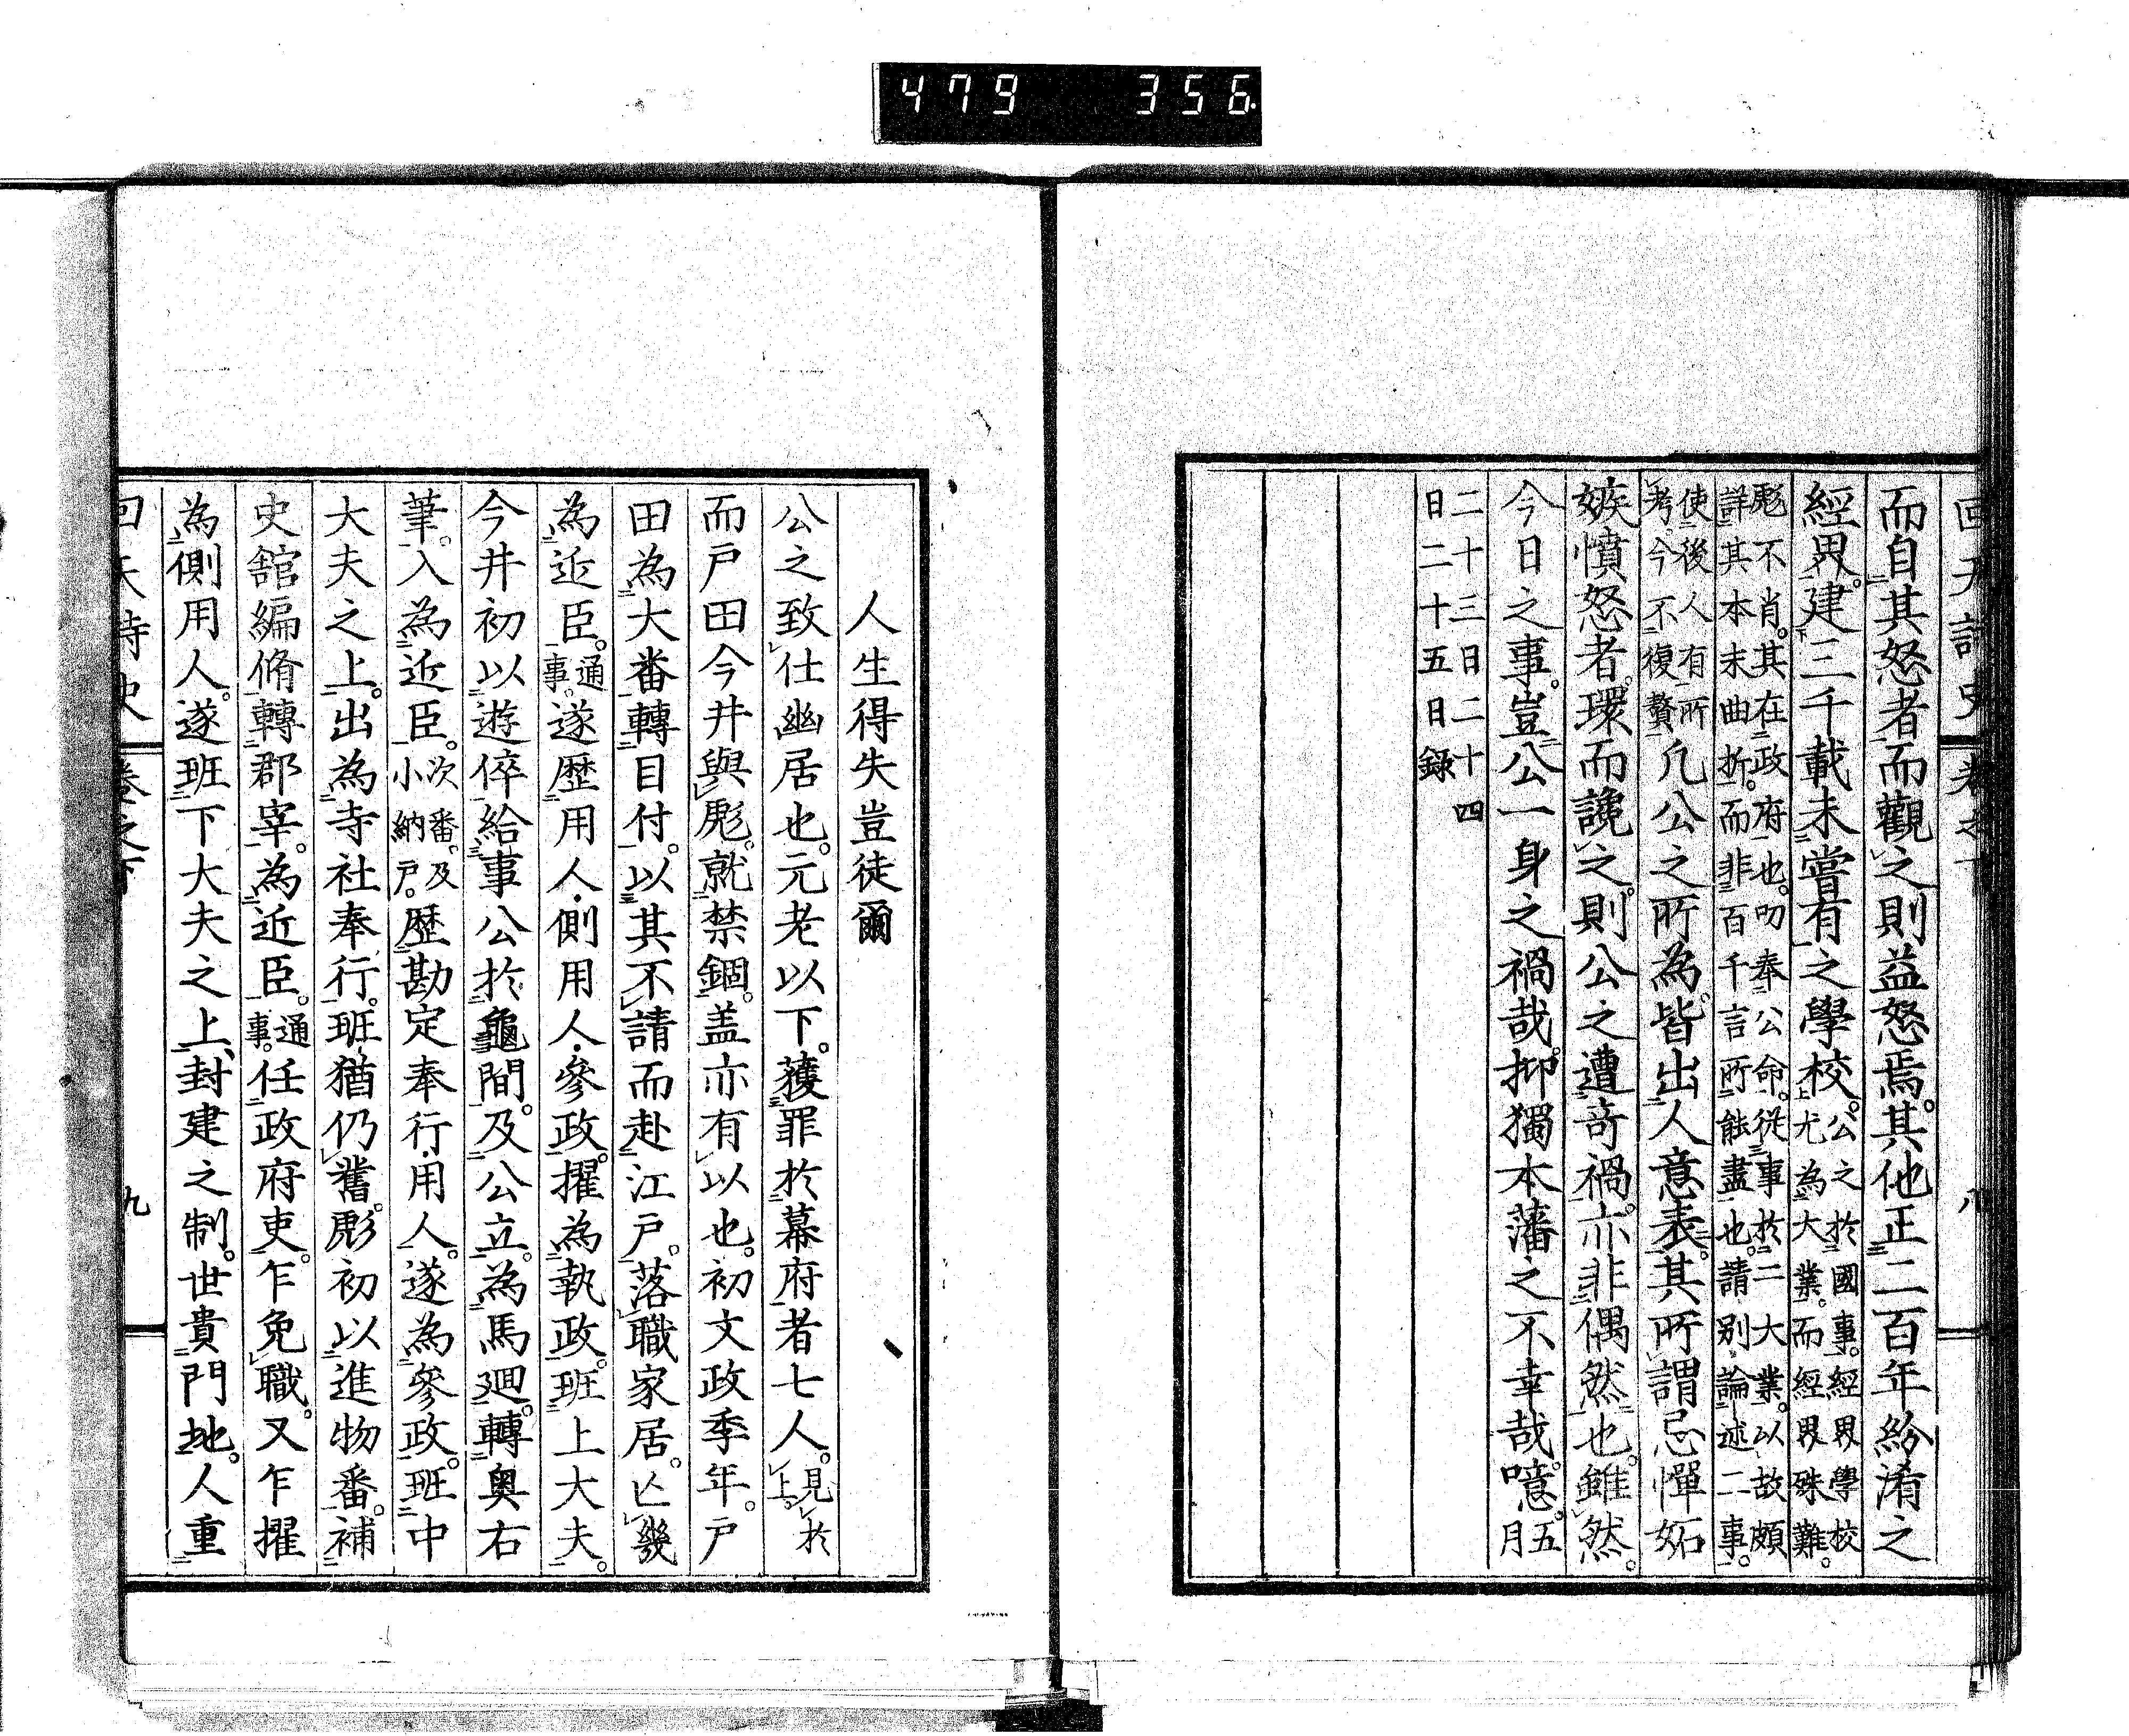 479 356
回天詩史 卷之下 八
而自其怒者而觀之則益怒焉其他正二百年紛淆之
經界建三千載未嘗有之學校公之於國事經界學校尤為大業而經界殊難
彪不肖其在政府也叨奉公命從事於二大業以故頗詳其本末曲折而非百千言所能盡也請別論述二事
使後人有所考今不復贅凡公之所為皆出人意表其所謂忌憚妬
嫉憤怒者環而讒之則公之遭奇禍亦非偶然也雖然
今日之事豈公一身之禍哉抑獨本藩之不幸哉噫五月
二十三日二十四日二十五日錄
人生得失豈徒爾
公之致仕幽居也元老以下獲罪於幕府者七人見於上
而戶田今井與彪就禁錮盖亦有以也初文政季年戶
田為大番轉目付以其不請而赴江戶落職家居亡幾
為近臣通事遂歷用人側用人參政擢為執政班上大夫
今井初以遊倅給事公於龜間及公立為馬廻轉奧右
筆入為近臣次番及小納戶歷勘定奉行用人遂為參政班中
大夫之上出為寺社奉行班猶仍舊彪初以進物番補
史舘編脩轉郡宰為近臣通事任政府吏乍免職又乍擢
為側用人遂班下大夫之上封建之制世貴門地人重
回天詩史 卷之下 九